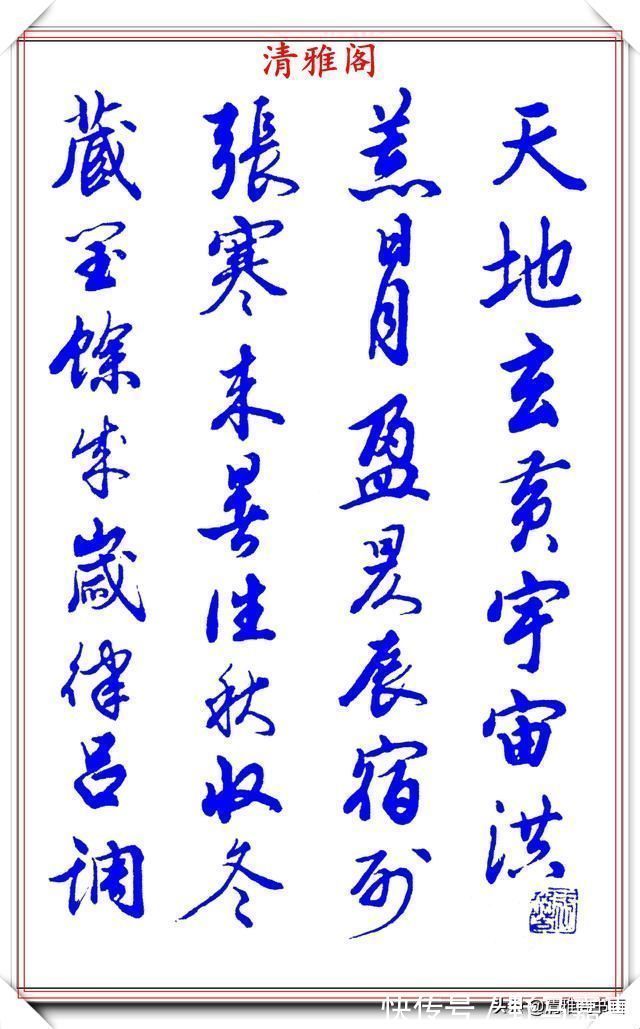 清雅阁
天地玄黄宇宙洪
荒日月盈昃辰宿列
張寒来暑往秋收冬
藏閏餘成歲律吕調
快传号